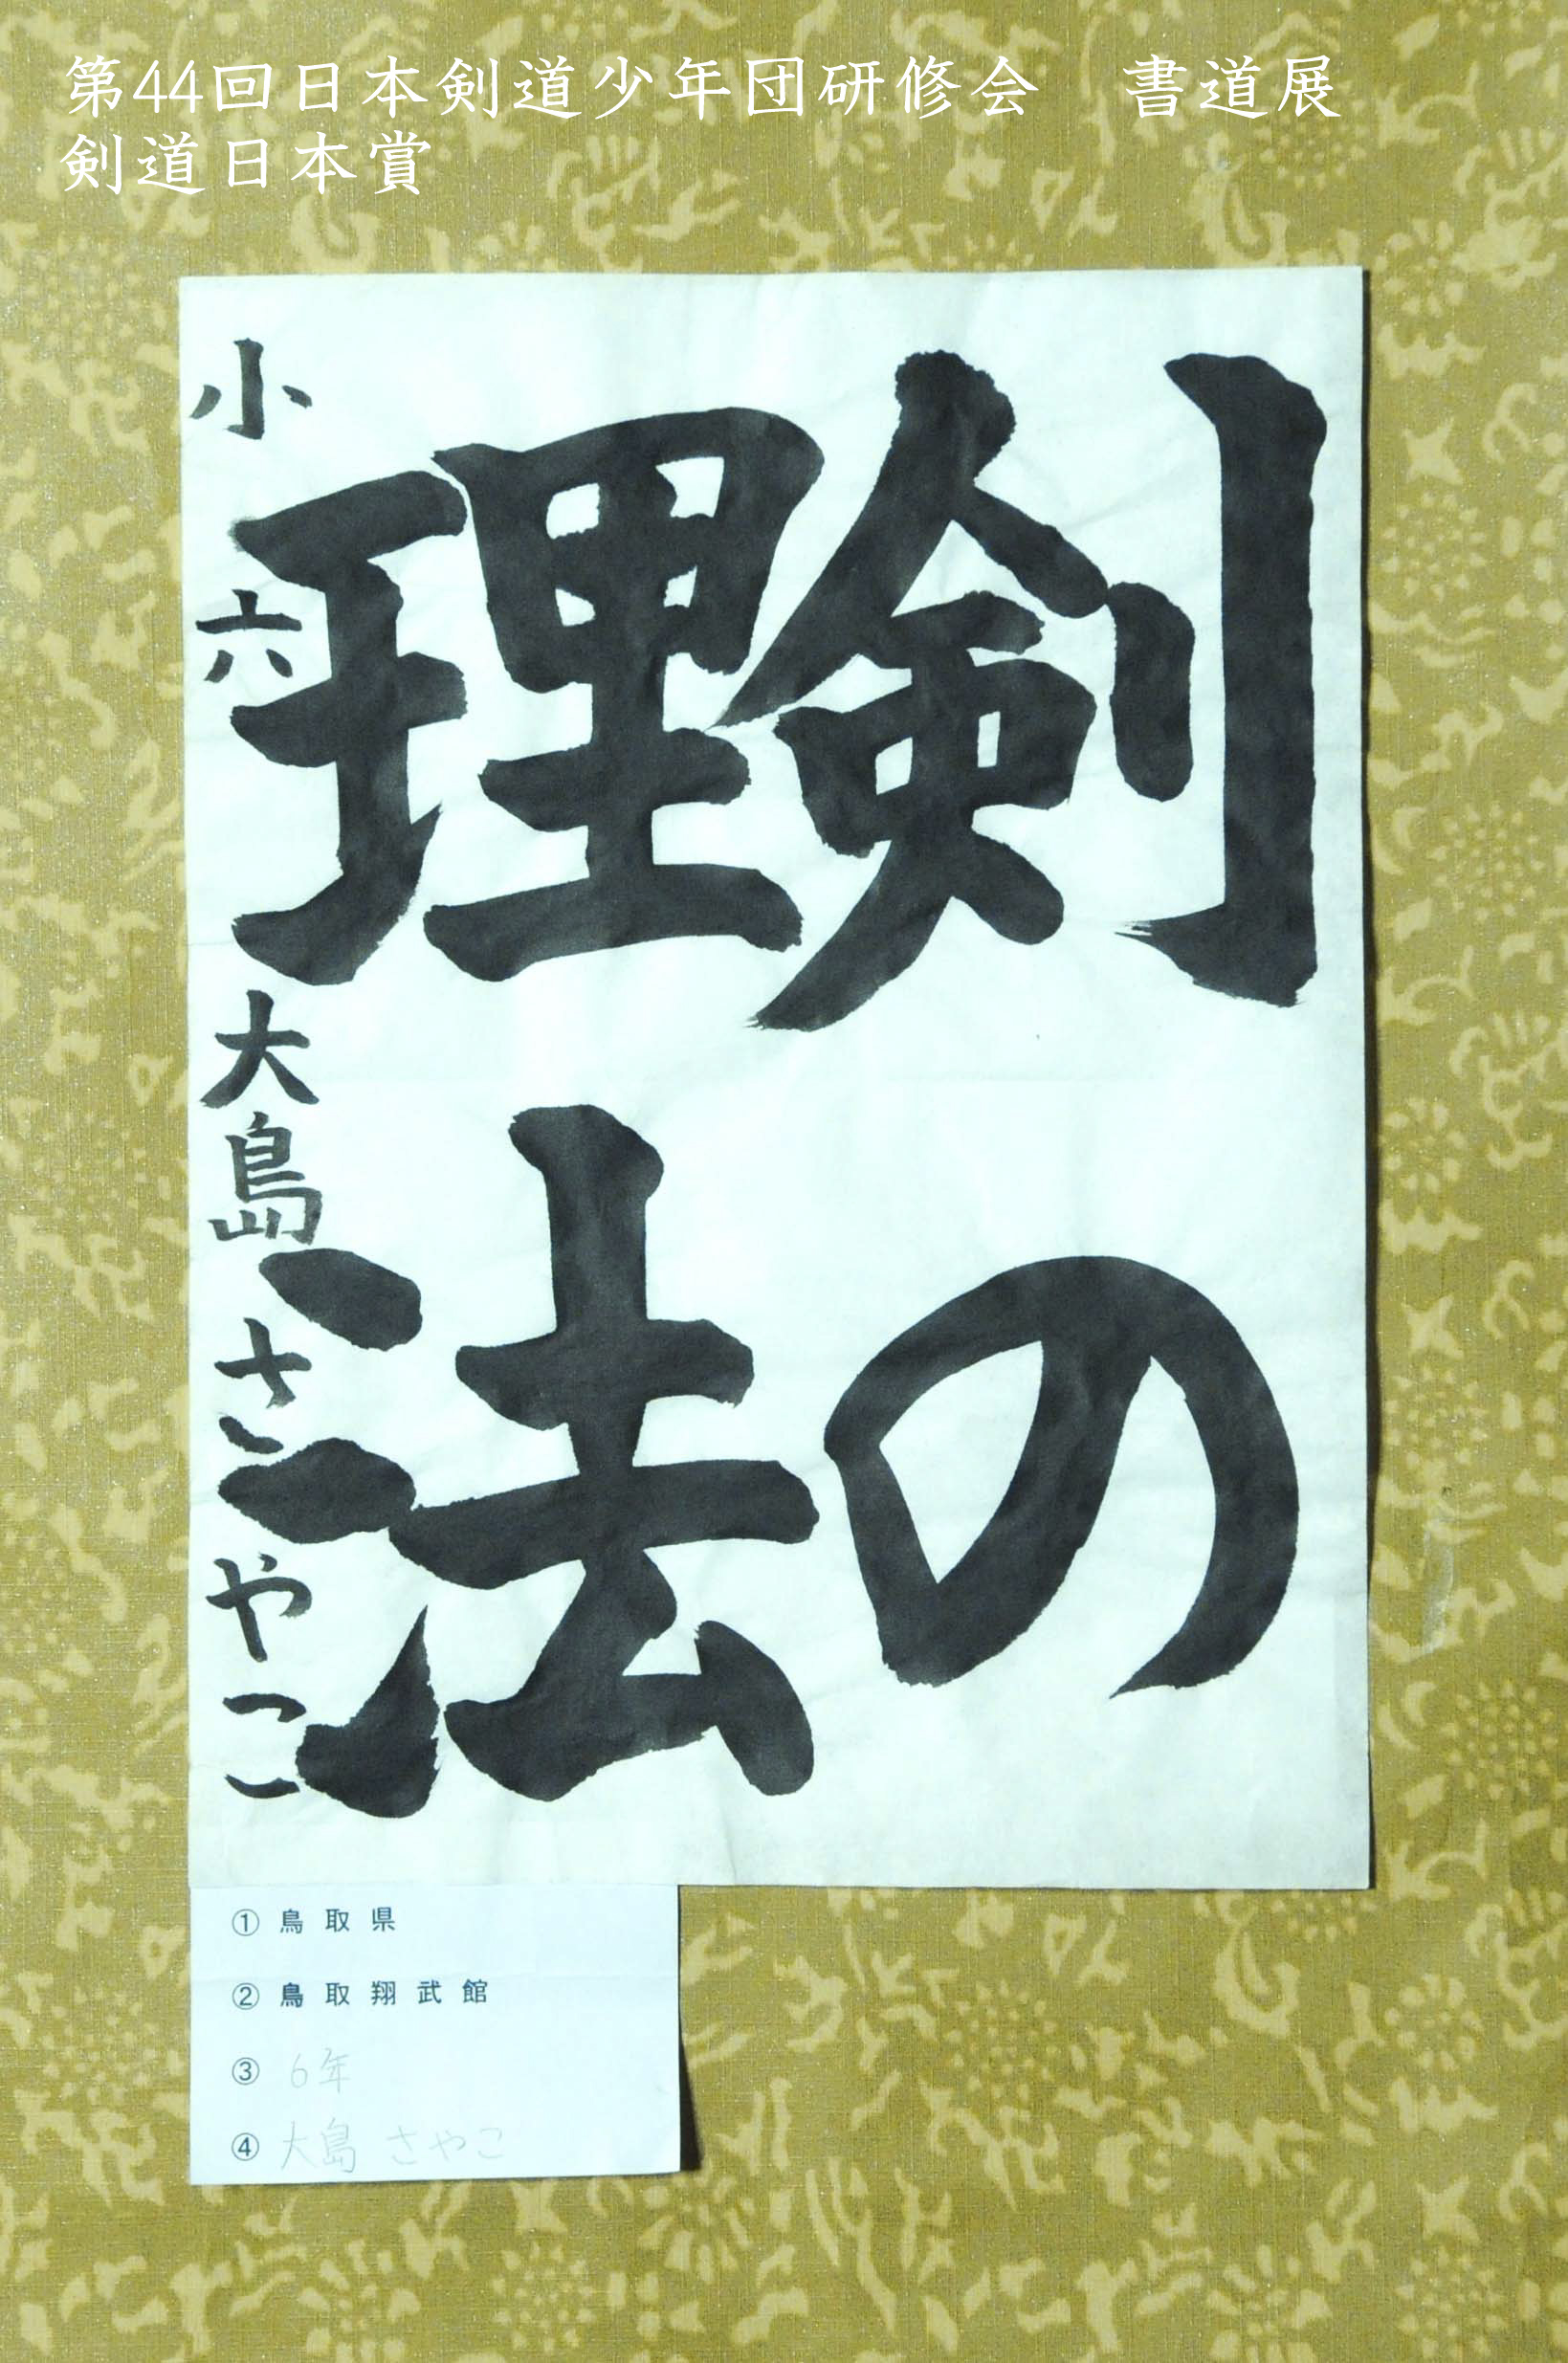 第44回日本剣道少年団研修会　書道展
剣道日本賞
剣の
理法
小六 大島さやこ
① 鳥取県
② 鳥取翔武館
③ 6年
④ 大島 さやこ